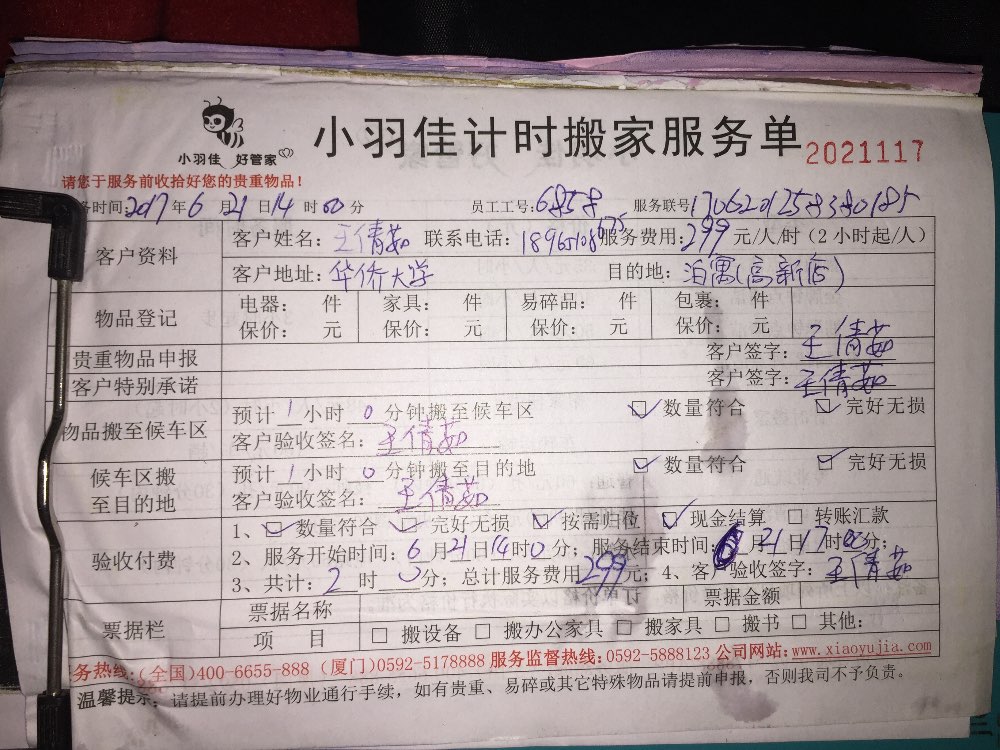 小羽佳计时搬家服务单
2021117
小羽佳 好管家
请您于服务前收拾好您的贵重物品！
务时间:2017年6月21日14时00分 员工工号:6858 服务联号17062012583380185
客户资料
客户姓名:王倩茹 联系电话:18965108675 服务费用:299元/人/时(2小时起/人)
客户地址:华侨大学 目的地:泊寓(高新店)
物品登记
电器: 件 家具: 件 易碎品: 件 包裹: 件
保价: 元 保价: 元 保价: 元 保价: 元
贵重物品申报 客户签字:王倩茹
客户特别承诺 客户签字:王倩茹
物品搬至候车区
预计1小时0分钟搬至候车区 数量符合 完好无损
客户验收签名:王倩茹
候车区搬至目的地
预计1小时0分钟搬至目的地 数量符合 完好无损
客户验收签名:王倩茹
验收付费
1、数量符合 完好无损 按需归位 现金结算 转账汇款
2、服务开始时间:6月21日14时0分;服务结束时间:6月21日17时00分;
3、共计:2时0分;总计服务费用299元;4、客户验收签字:王倩茹
票据栏
票据名称 票据金额
项 目 搬设备 搬办公家具 搬家具 搬书 其他:
务热线:(全国)400-6655-888 (厦门)0592-5178888 服务监督热线:0592-5888123 公司网站:www.xiaoyujia.com
温馨提示:请提前办理好物业通行手续,如有贵重、易碎或其它特殊物品请提前申报,否则我司不予负责。